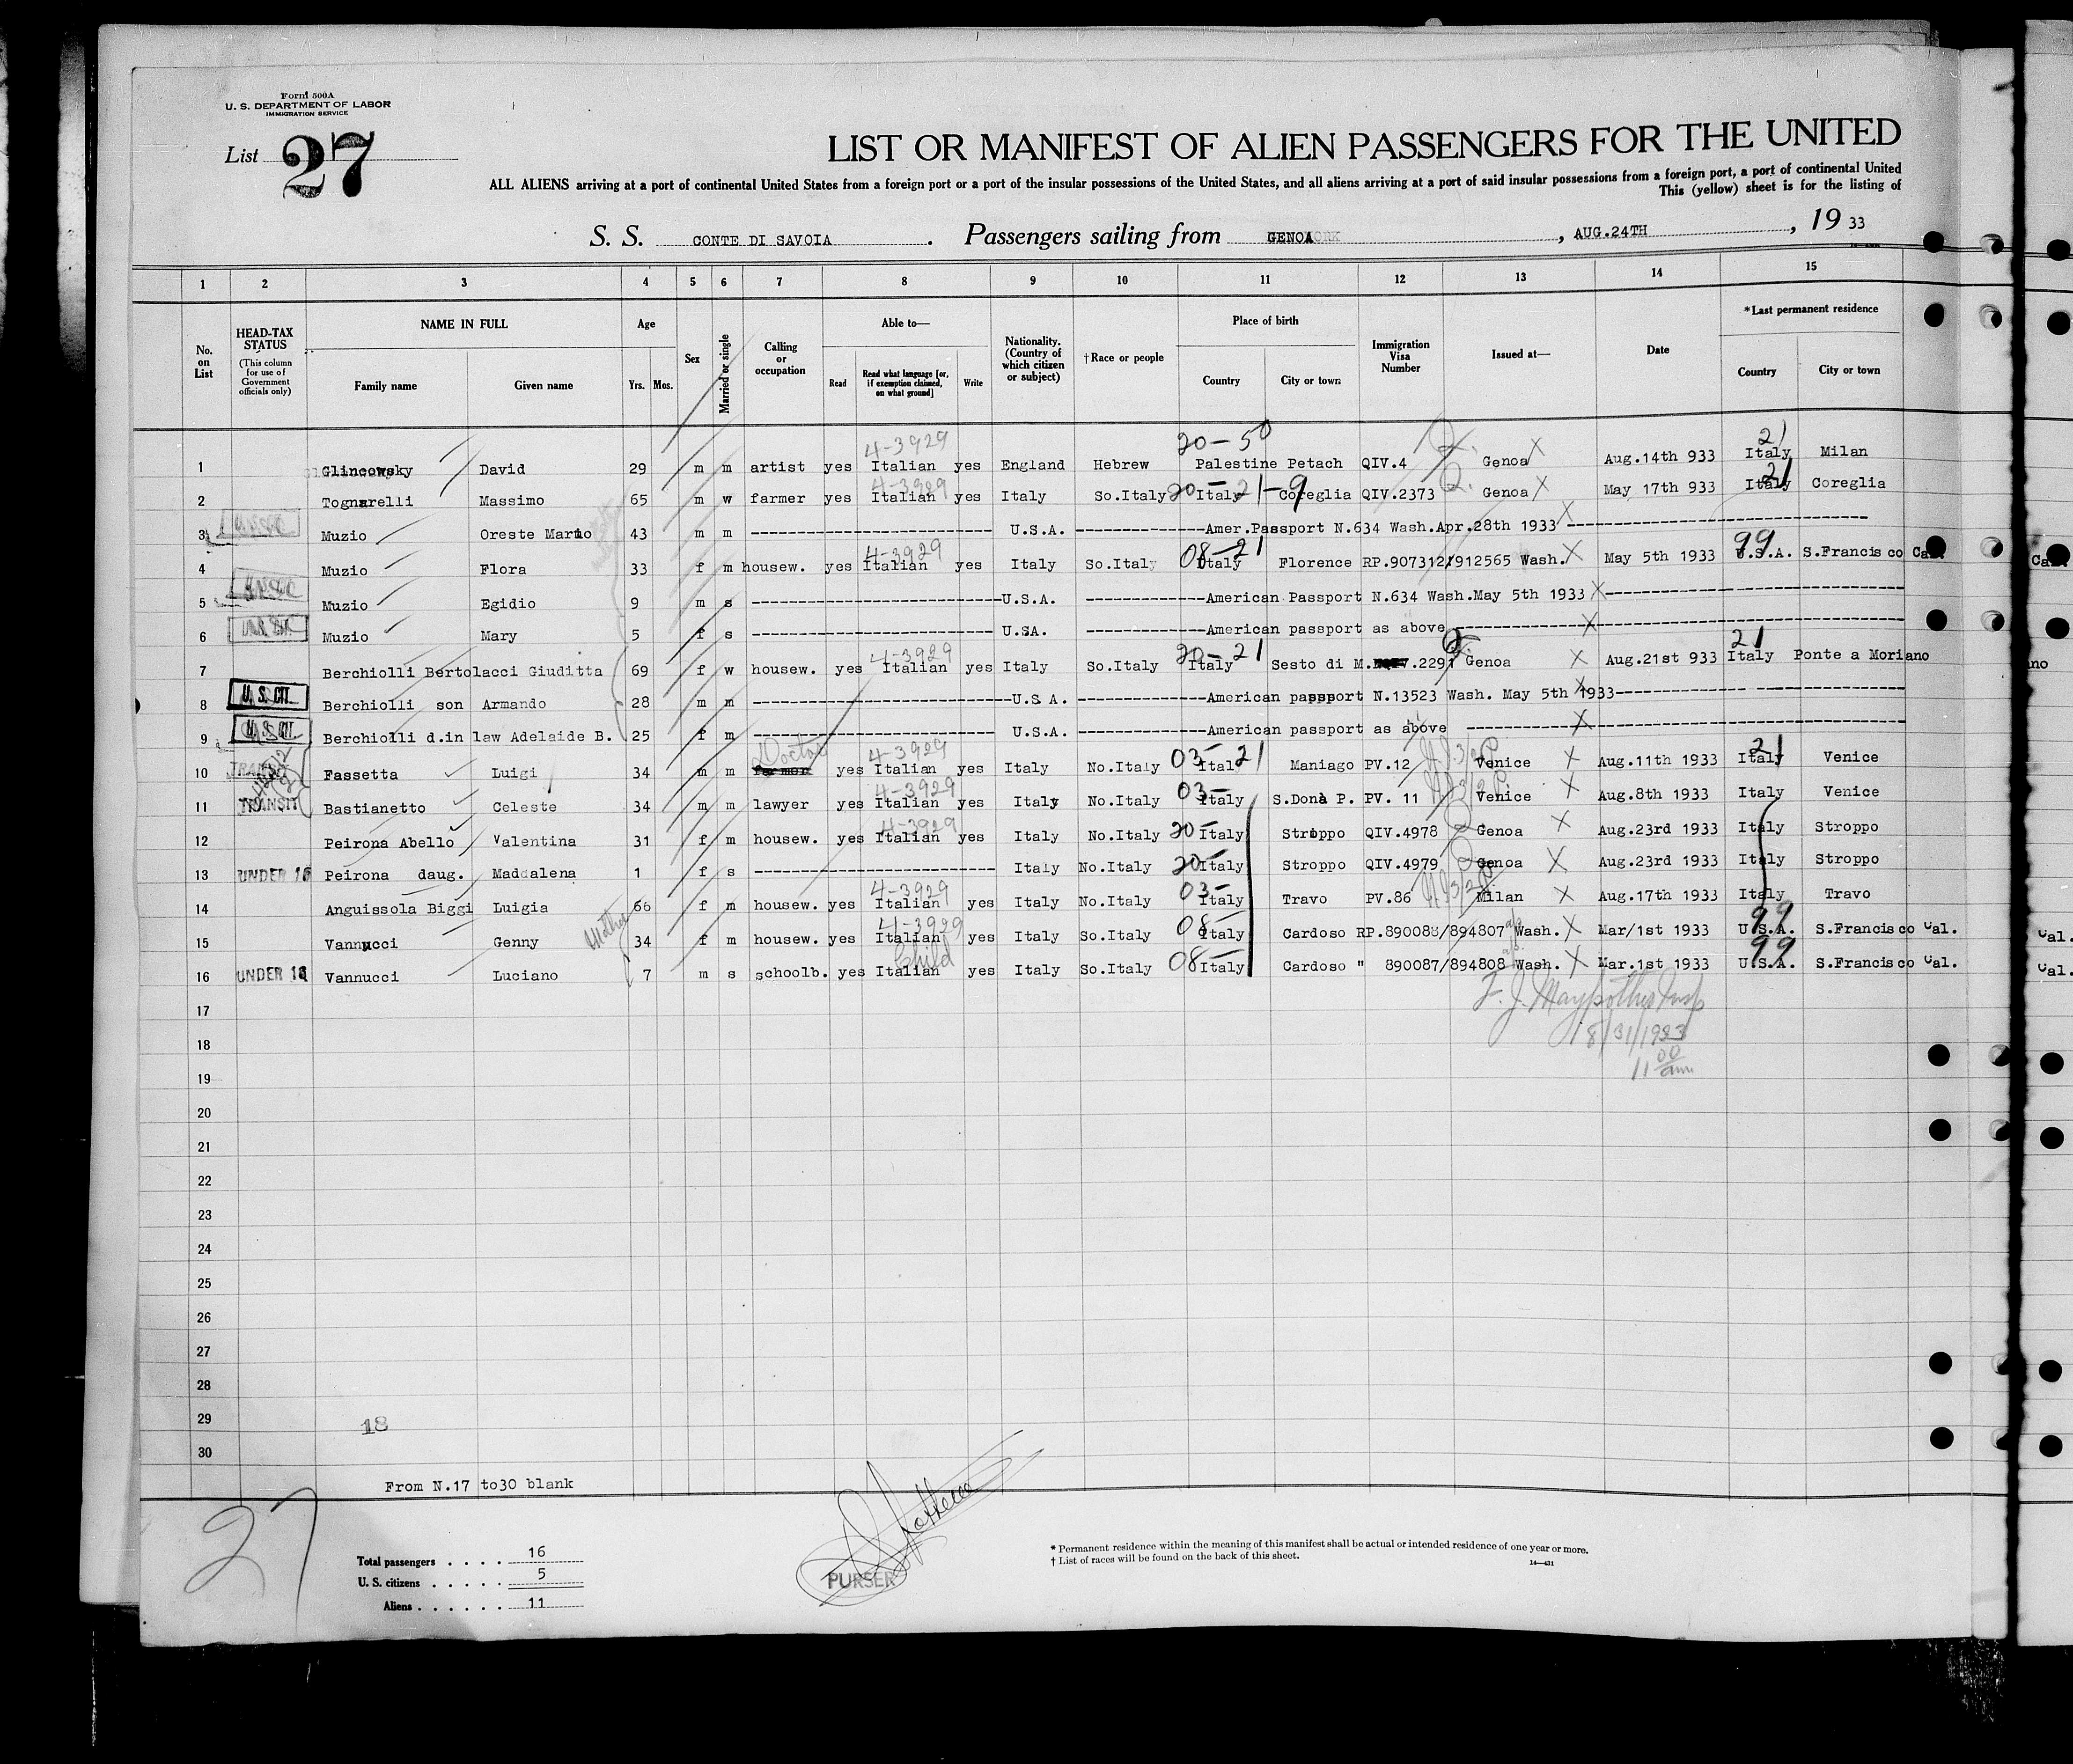 Form 500A
U. S. DEPARTMENT OF LABOR
IMMIGRATION SERVICE
List 27
LIST OR MANIFEST OF ALIEN PASSENGERS FOR THE UNITED
ALL ALIENS arriving at a port of continental United States from a foreign port or a port of the insular possessions of the United States, and all aliens arriving at a port of said insular possessions from a foreign port, a port of continental United
This (yellow) sheet is for the listing of
S. S. CONTE DI SAVOIA. Passengers sailing from GENOA, AUG.24TH, 19 33
1 2 3 4 5 6 7 8 9 10 11 12 13 14 15
No. on List
HEAD-TAX STATUS (This column for use of Government officials only)
NAME IN FULL
Family name Given name
Age
Yrs. Mos.
Sex
Married or single
Calling or occupation
Able to—
Read Read what language [or, if exemption claimed, on what ground] Write
Nationality. (Country of which citizen or subject)
†Race or people
Place of birth
Country City or town
Immigration Visa Number
Issued at—
Date
*Last permanent residence
Country City or town
20-50 4-3929 21
1 Glincowsky David 29 m m artist yes Italian yes England Hebrew Palestine Petach QIV.4 Genoa X Aug.14th 933 Italy Milan
4-3929 20- 21-9 21
2 Tognarelli Massimo 65 m w farmer yes Italian yes Italy So.Italy Italy Coreglia QIV.2373 Genoa X May 17th 933 Italy Coreglia
3 Muzio Oreste Mario 43 m m U.S.A. Amer.Passport N.634 Wash.Apr.28th 1933 X
4-3929 08-21 99
4 Muzio Flora 33 f m housew. yes Italian yes Italy So.Italy Italy Florence RP.907312/912565 Wash. X May 5th 1933 U.S.A. S.Francisco Cal.
5 Muzio Egidio 9 m s U.S.A. American Passport N.634 Wash.May 5th 1933 X
6 Muzio Mary 5 f s U.SA. American passport as above X
4-3929 20-21 21
7 Berchiolli Bertolacci Giuditta 69 f w housew. yes Italian yes Italy So.Italy Italy Sesto di M. 2291 Genoa X Aug.21st 933 Italy Ponte a Moriano
8 U. S. CIT. Berchiolli son Armando 28 m m U.S A. American passport N.13523 Wash. May 5th 1933 X
9 U. S. CIT. Berchiolli d.in law Adelaide B. 25 f m U.S.A. American passport as above X
Doctor 4-3929 03-21 21
10 TRANSIT Fassetta Luigi 34 m m yes Italian yes Italy No.Italy Ital Maniago PV.12 Venice X Aug.11th 1933 Italy Venice
4-3929 03-
11 TRANSIT Bastianetto Celeste 34 m m lawyer yes Italian yes Italy No.Italy Italy S.Donà P. PV. 11 Venice X Aug.8th 1933 Italy Venice
4-3929 20-
12 Peirona Abello Valentina 31 f m housew. yes Italian yes Italy No.Italy Italy Stroppo QIV.4978 Genoa X Aug.23rd 1933 Italy Stroppo
20-
13 UNDER 16 Peirona daug. Maddalena 1 f s Italy No.Italy Italy Stroppo QIV.4979 Genoa X Aug.23rd 1933 Italy Stroppo
4-3929 03-
14 Anguissola Biggi Luigia 66 f m housew. yes Italian yes Italy No.Italy Italy Travo PV.86 Milan X Aug.17th 1933 Italy Travo
Mother 4-3929 08- 99
15 Vannucci Genny 34 f m housew. yes Italian yes Italy So.Italy Italy Cardoso RP.890088/894807 Wash. X Mar/1st 1933 U.S.A. S.Francisco Cal.
Child 08- 99
16 UNDER 16 Vannucci Luciano 7 m s schoolb. yes Italian yes Italy So.Italy Italy Cardoso " 890087/894808 Wash. X Mar.1st 1933 U.S.A. S.Francisco Cal.
17
8/31/1933
18
11 00 am
19
20
21
22
23
24
25
26
27
28
29
18
30
From N.17 to30 blank
27
Total passengers 16
U. S. citizens 5
Aliens 11
PURSER
* Permanent residence within the meaning of this manifest shall be actual or intended residence of one year or more.
† List of races will be found on the back of this sheet.
Cal.
no
Cal.
Cal.